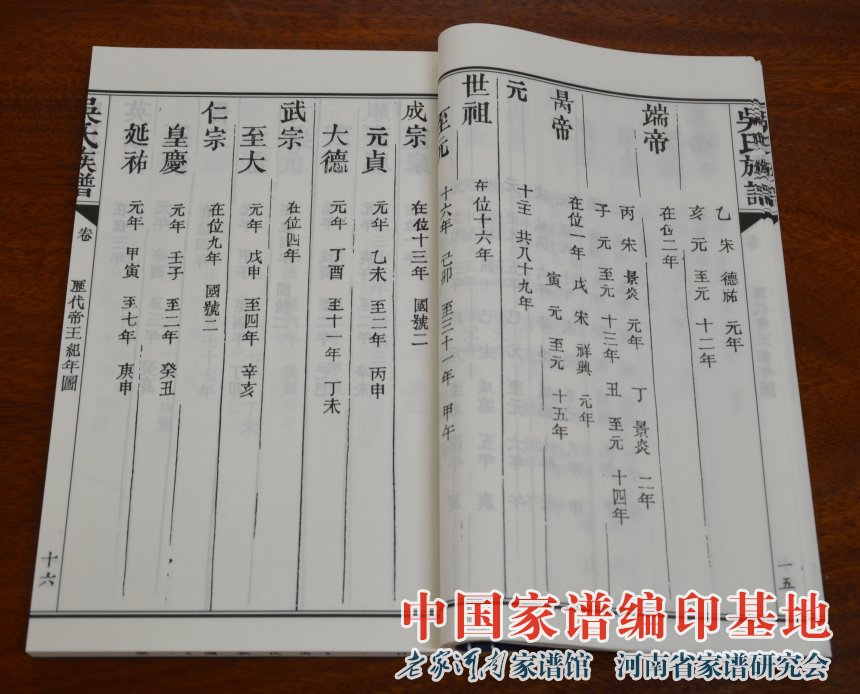 吳氏族譜
乙 宋 德祐 元年
亥 元 至元 十二年
端帝
在位二年
丙 宋 景炎 元年 丁 景炎 二年
子 元 至元 十三年 丑 至元 十四年
昺帝
在位一年 戊 宋 祥興 元年
寅 元 至元 十五年
元
十主 共八十九年
世祖
在位十六年
至元 十六年 己卯 至三十一年 甲午
一五
成宗
在位十三年 國號二
元貞 元年 乙未 至二年 丙申
大德 元年 丁酉 至十一年 丁未
武宗
在位四年
至大 元年 戊申 至四年 辛亥
仁宗
在位九年 國號二
皇慶 元年 壬子 至二年 癸丑
延祐 元年 甲寅 至七年 庚申
吳氏族譜
卷
歷代帝王紀年圖
十六
中国家谱编印基地
老家河南家谱馆 河南省家谱研究会